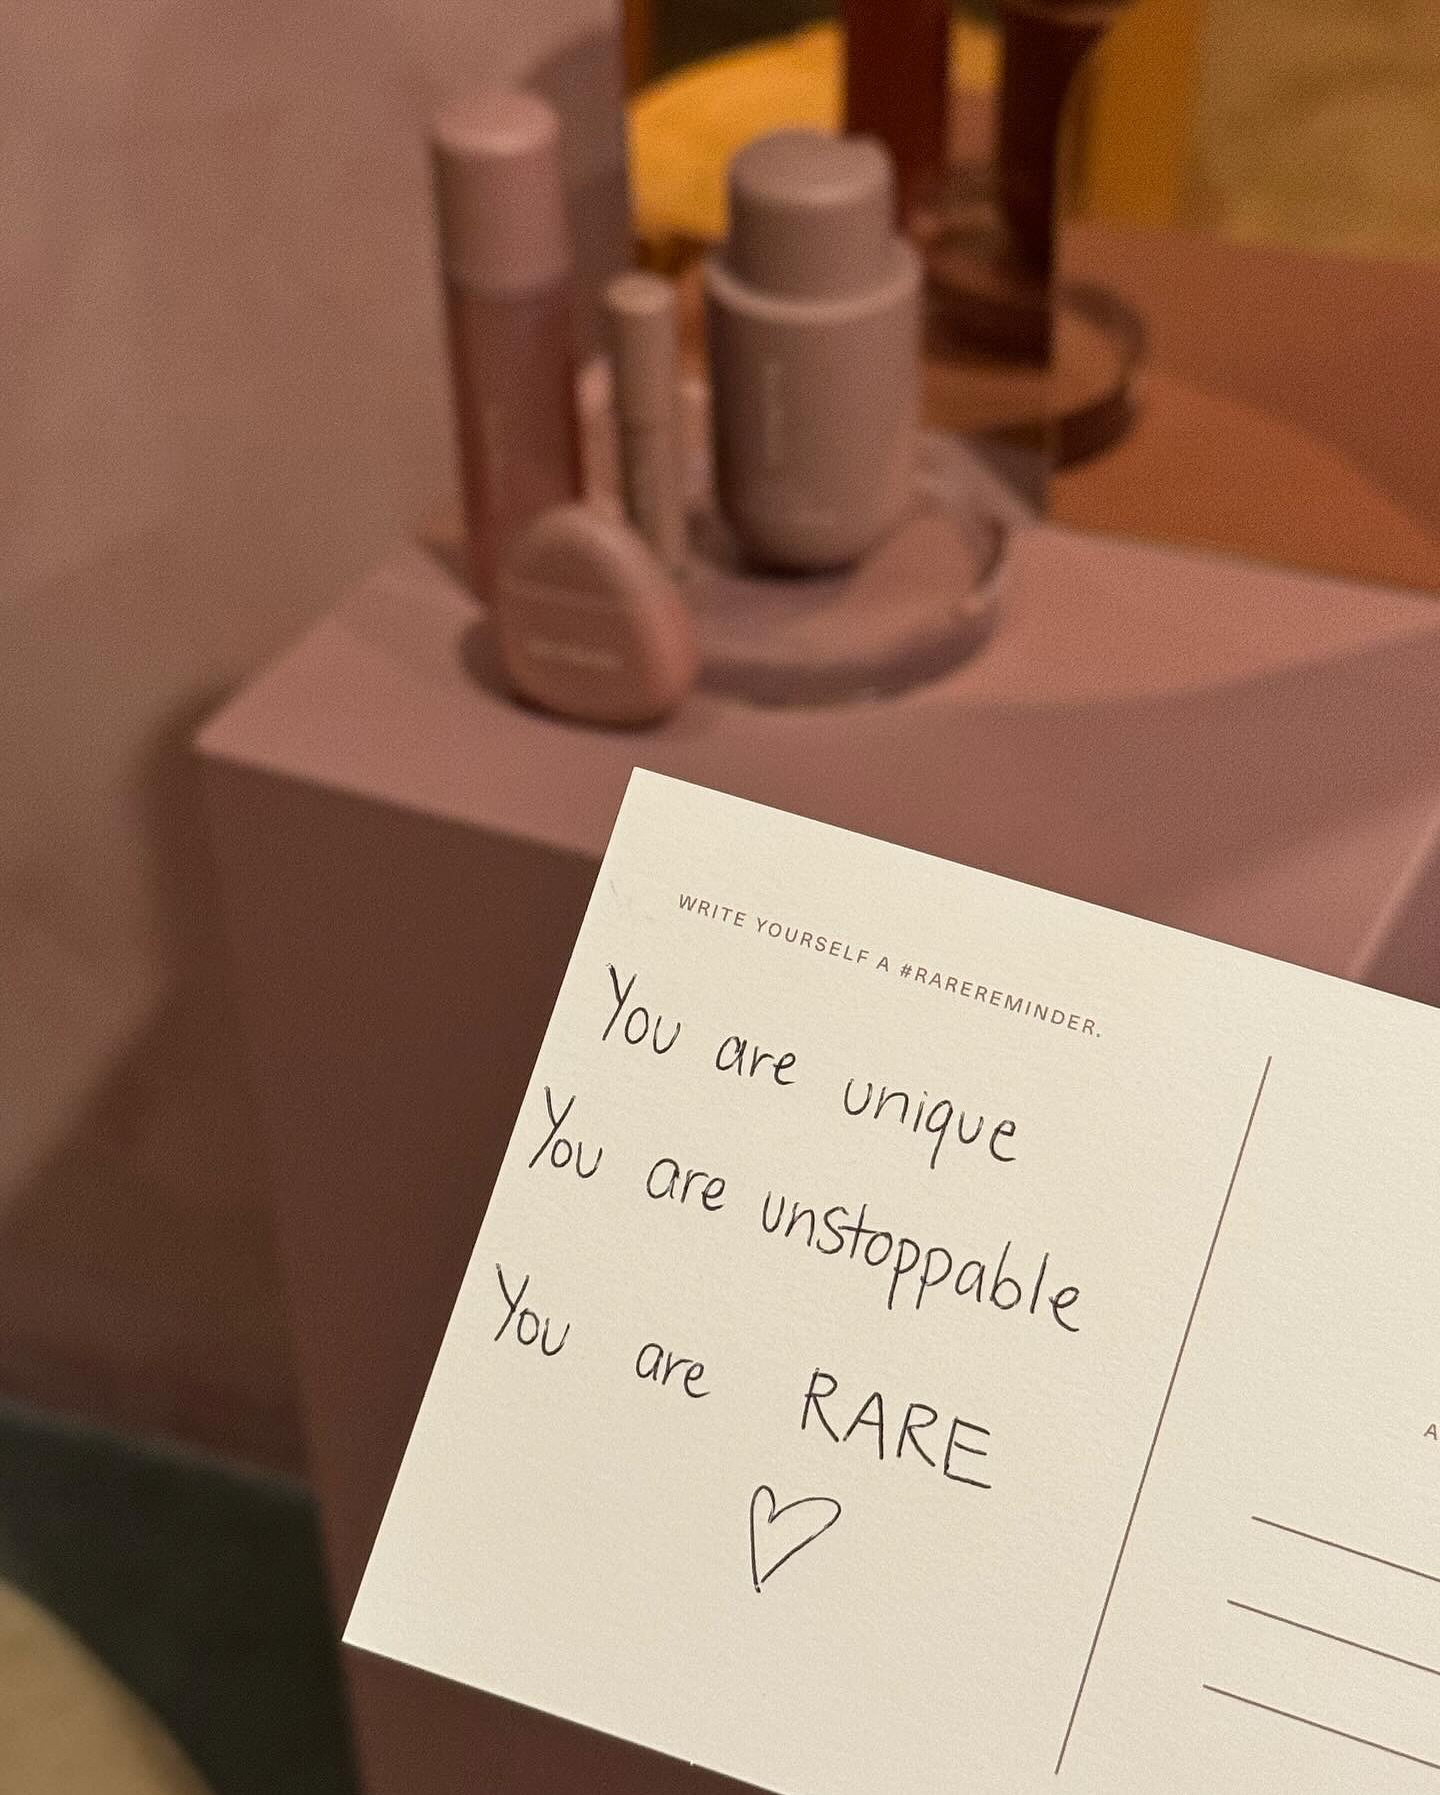 WRITE YOURSELF A #RAREREMINDER.
You are unique
You are unstoppable
You are RARE
A